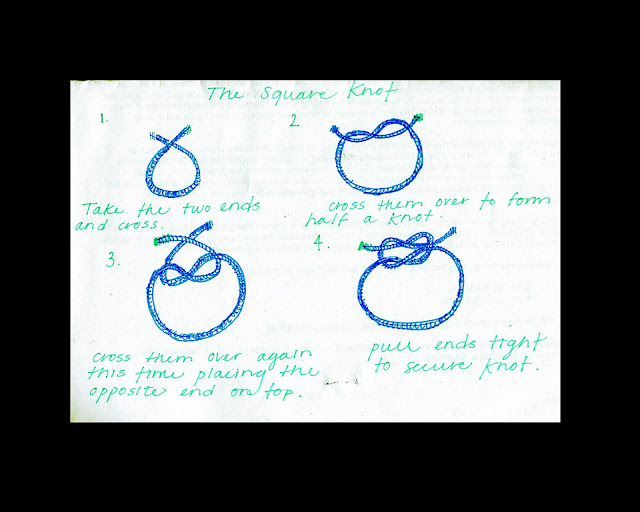 The Square Knot
1.
Take the two ends
and cross.
2
cross them over to form
half a knot.
3.
cross them over again
this time placing the
opposite end on top.
4.
pull ends tight
to secure knot.